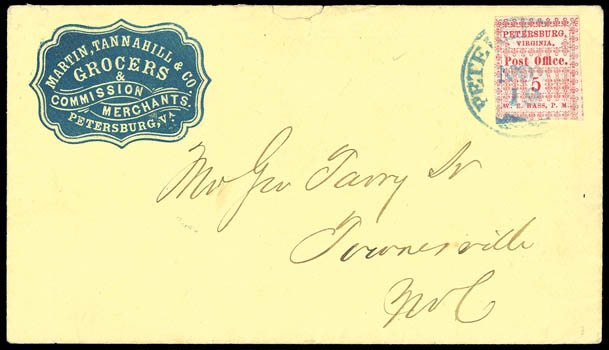 MARTIN, TANNAHILL & CO.
GROCERS
&
COMMISSION
MERCHANTS.
PETERSBURG, VA
PETERSBURG,
VIRGINIA.
Post Office.
5
W. E. BASS, P. M.
PETE
Mr Geo Tarry Sr
Townesville
No C